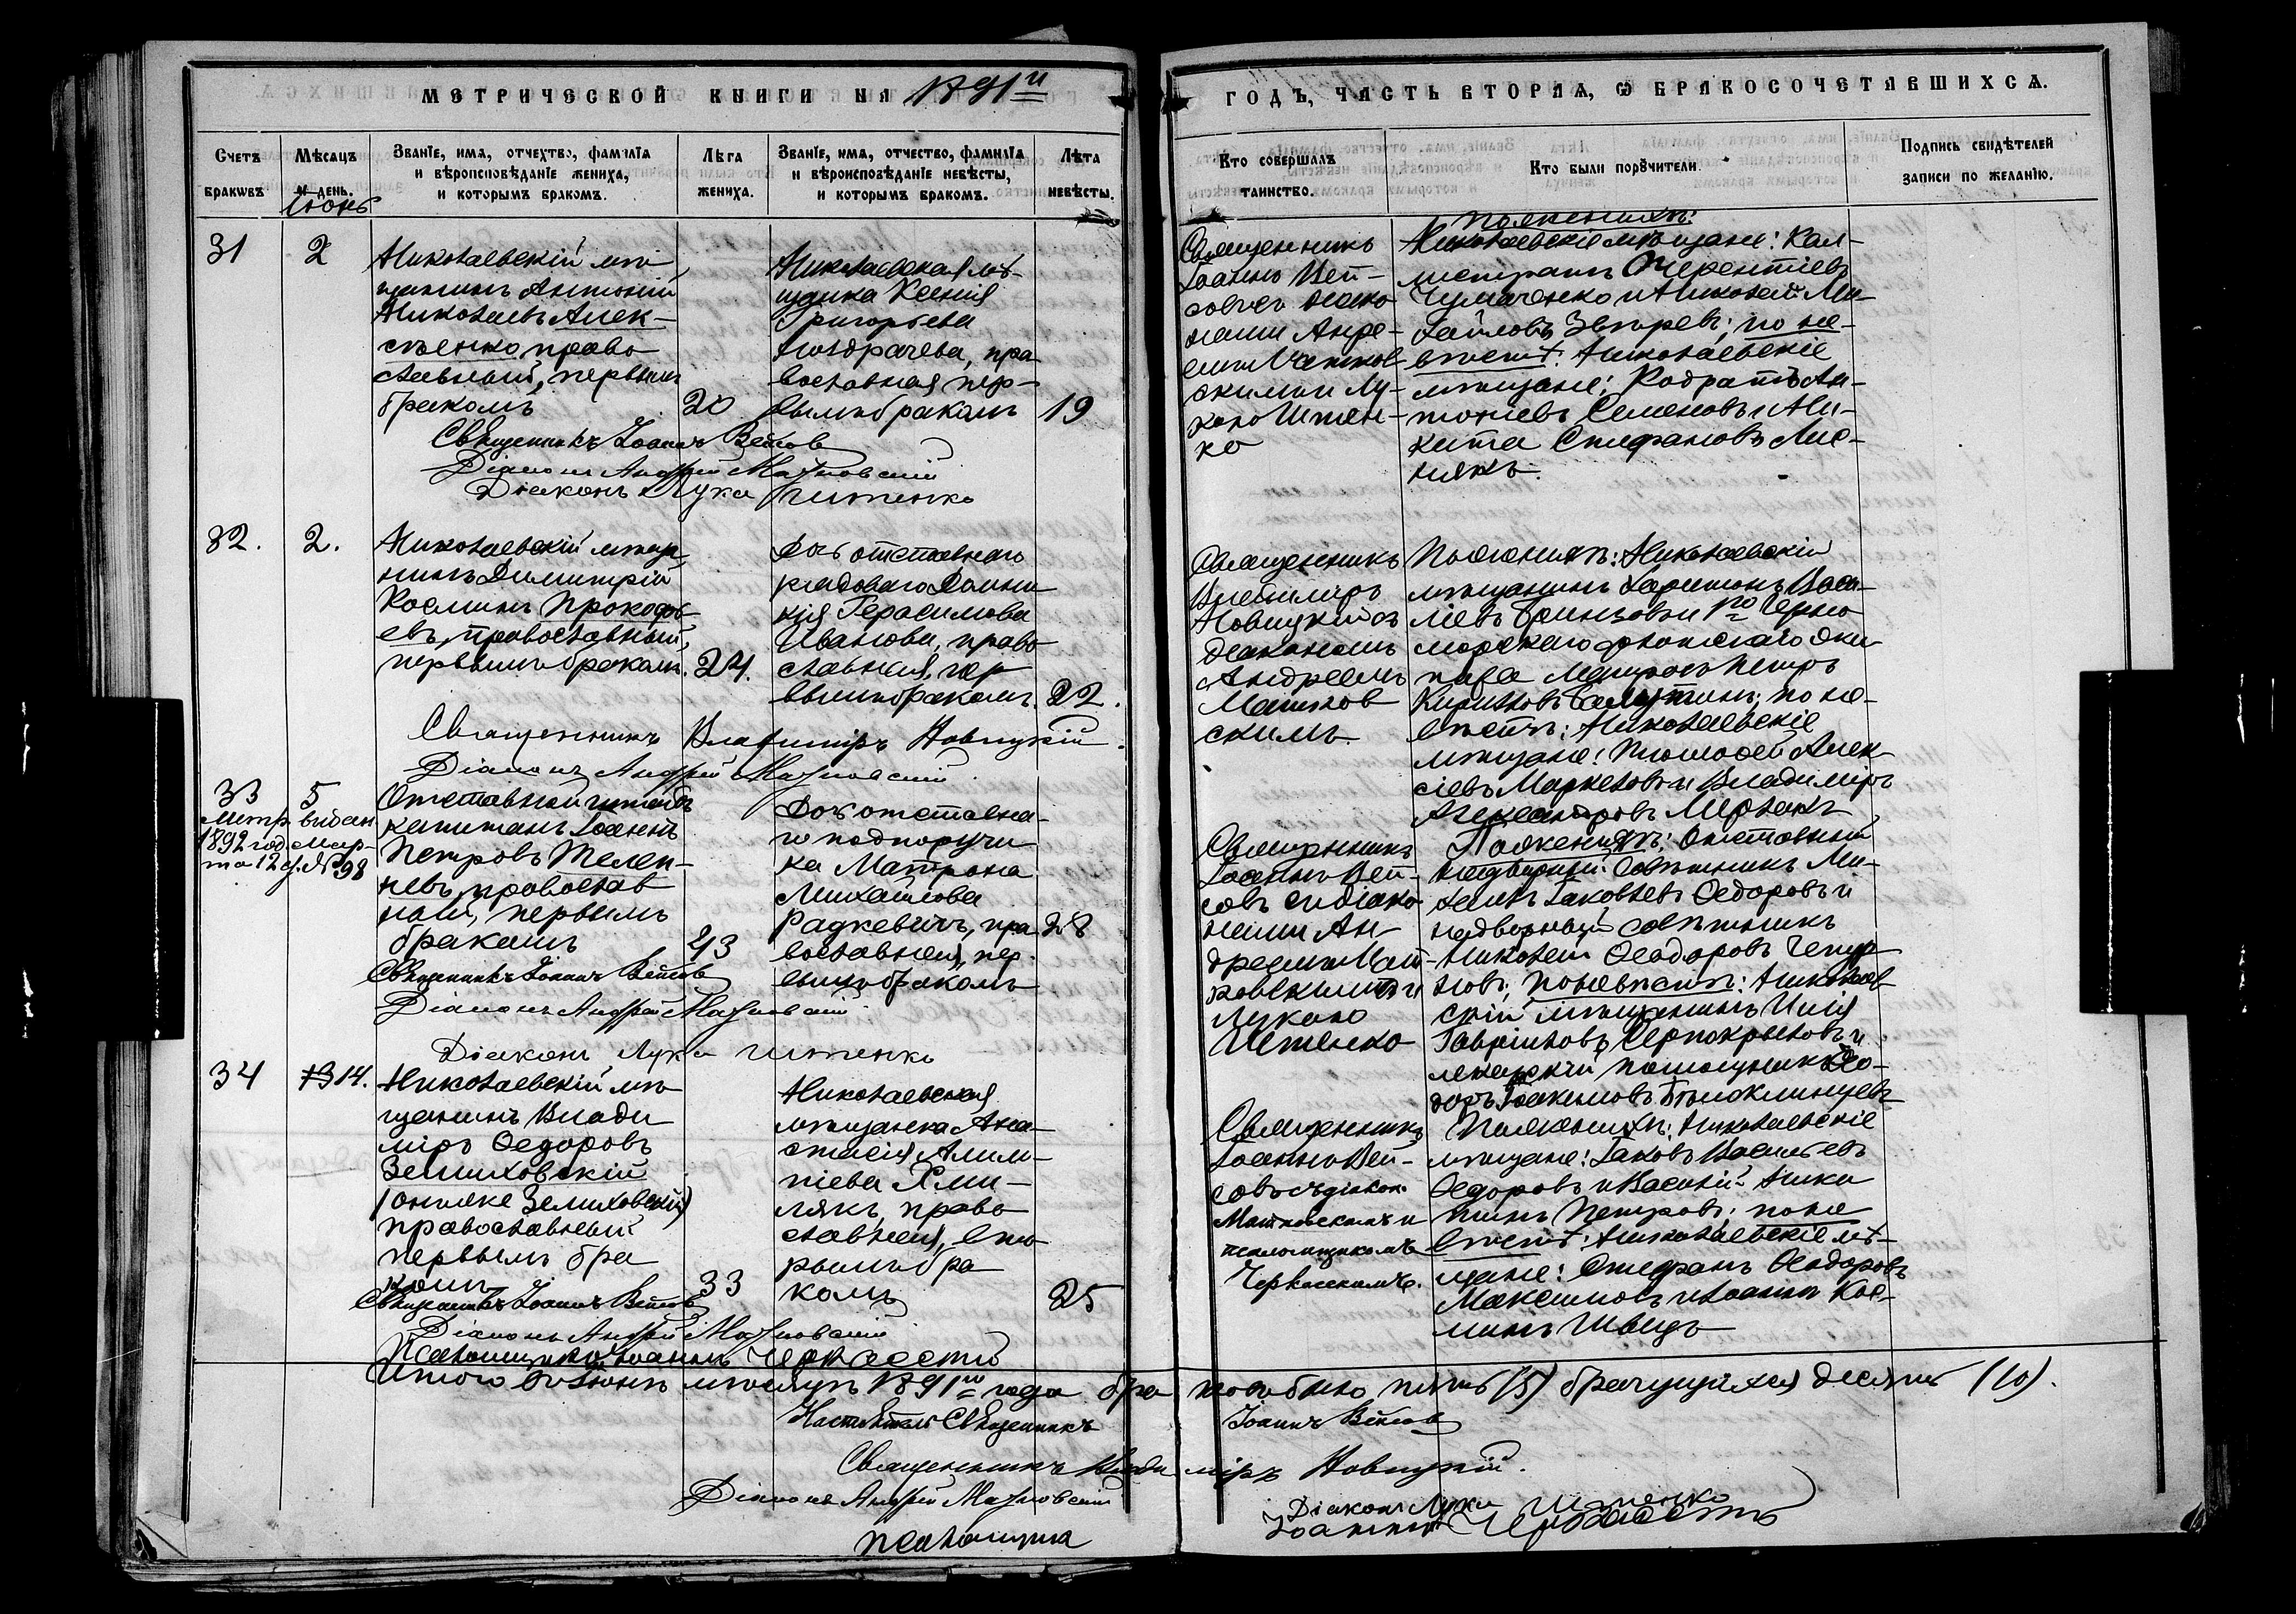 МЕТРИЧЕСКОЙ КНИГИ НА 1891й
ГОДЪ, ЧАСТЬ ВТОРАЯ, Ѡ БРАКОСОЧЕТАВШИХСЯ.
Счетъ браквъ
Мѣсяцъ и день.
Июнь
Званіе, имя, отчехтво, фамилія
и вѣроисповѣданіе жениха,
и которымъ бракомъ.
Лѣта
жениха.
Званіе, имя, отчество, фамилія
и вѣроисповѣданіе невѣсты,
и которымъ бракомъ.
Лѣта
невѣсты.
Кто совершалъ
таинство.
Кто были порꙋчители.
Подпись свидѣтелей
записи по желанію.
31
2
Николаевскій мѣ
щанинъ Антоній
Николаевъ Алек-
сѣенко, право
славный, первымъ
бракомъ
20
Николаевская мѣ-
щанка Ксенія
Григорьева
Ноздрачева, пра
вославная, пер-
вымъ бракомъ
19
Священникъ
Іоаннъ Вет-
съ діако
нами Андре-
емъ
скимъ и Лу-
кою Иттен-
ко
По женихѣ:
Николаевскіе мѣщане: Кал-
Терентіевъ
Чумаченко и Николай Ми-
хайловъ Звѣревъ; по не-
вѣстѣ: Николаевскіе
мѣщане: Кодратъ Ан-
тоніевъ Семеновъ и Ни-
кита Стефановъ Лис-
някъ.
Священникъ Іоаннъ
Діаконъ Андрей
Діаконъ Лука
32.
2.
Николаевскій мѣща
нинъ Димитрій
Косминъ Прокофь-
евъ, православный,
первымъ бракомъ.
24.
Дочь отставнаго
рядоваго Домни
кія Герасимова
Иванова, право
славная, пер
вымъ бракомъ.
22.
Священникъ
Владиміръ
Новицкій съ
діакономъ
Андреемъ
скимъ.
По женихѣ: Николаевскій
мѣщанинъ Харитонъ Васи-
ліевъ и 1го Черно
морскаго флотскаго эки
пажа матросъ Петръ
Кириловъ; по не-
вѣстѣ: Николаевскіе
мѣщане: Тимофей Алек
сіевъ и Владиміръ
Александровъ
Священникъ Владиміръ Новицкій.
Діаконъ Андрей
33
5
Метр. выдан
1892 год. Мар-
та 12 д. № 98
Отставный штабъ
капитанъ Іоаннъ
Петровъ Телеп-
невъ, православ
ный, первымъ
бракомъ
43
Дочь отставна-
го подпоручи
ка Матрона
Михайлова
Радкевичъ, пра
вославная, пер-
вымъ бракомъ
28
Священникъ
Іоаннъ
съ діако
нами Ан-
дреемъ
и
Лукою
По женихѣ: Отставный
надворный совѣтникъ Ми-
хаилъ Іаковлевъ Ѳедоровъ и
надворный совѣтникъ
Николай Ѳеодоровъ
; по невѣстѣ: Николаев
скій мѣщанинъ Илія
Гавріиловъ и
лекарскій помощникъ Ѳео-
доръ Іоакимовъ
Священникъ Іоаннъ
Діаконъ Андрей
Діаконъ Лука
34
14.
Николаевскій мѣ-
щанинъ Влади
міръ Ѳедоровъ
Земиховскій
(онъ же Зелиховскій)
православный
первымъ бра
комъ
33
Николаевская
мѣщанка Ана-
стасія
піева Хми-
лякъ, право
славная, вто
рымъ бра
комъ
25
Священникъ
Іоаннъ
съ діакон.
и
псаломщикомъ
Черкасскимъ.
По женихѣ: Николаевскіе
мѣщане: Іаковъ Васильевъ
Ѳедоровъ и Василій Ники
тинъ Петровъ; по не
вѣстѣ: Николаевскіе мѣ-
щане: Стефанъ Ѳеодоровъ
Максимовъ и Іоаннъ Кос-
минъ Швецъ
Священникъ Іоаннъ
Діаконъ Андрей
Псаломщикъ Іоаннъ
Итого въ Іюнѣ мѣсяцѣ 1891го года бра ковъ было пять (5) брачущихся десять (10).
Настоятель Священникъ Іоаннъ
Священникъ Влади міръ Новицкій.
Діаконъ Андрей
Діаконъ Лука
Псаломщикъ Іоаннъ